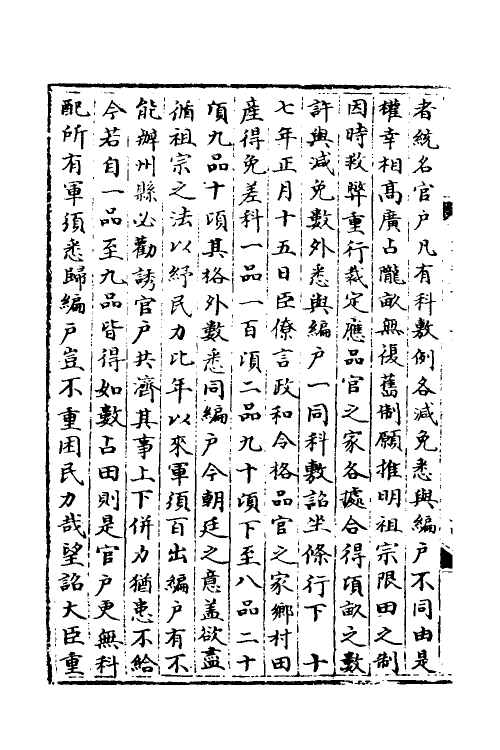 者統名官戶凡有科敷例各減免悉與編戶不同由是
權幸相髙廣占隴畝無復舊制願推明祖宗限田之制
因時救弊重行裁定應品官之家各據合得頃畝之數
許與減免數外悉與編戶一同科敷詔坐條行下　十
七年正月十五日臣僚言政和令格品官之家鄉村田
產得免差科一品一百頃二品九十頃下至八品二十
頃九品十頃其格外數悉同編戶今朝廷之意蓋欲盡
循祖宗之法以紓民力比年以來軍須百出編戶有不
能辦州縣必勸誘官戶共濟其事上下併力猶患不給
今若自一品至九品皆得如數占田則是官戶更無科
配所有軍須悉歸編戶豈不重困民力哉望詔大臣重